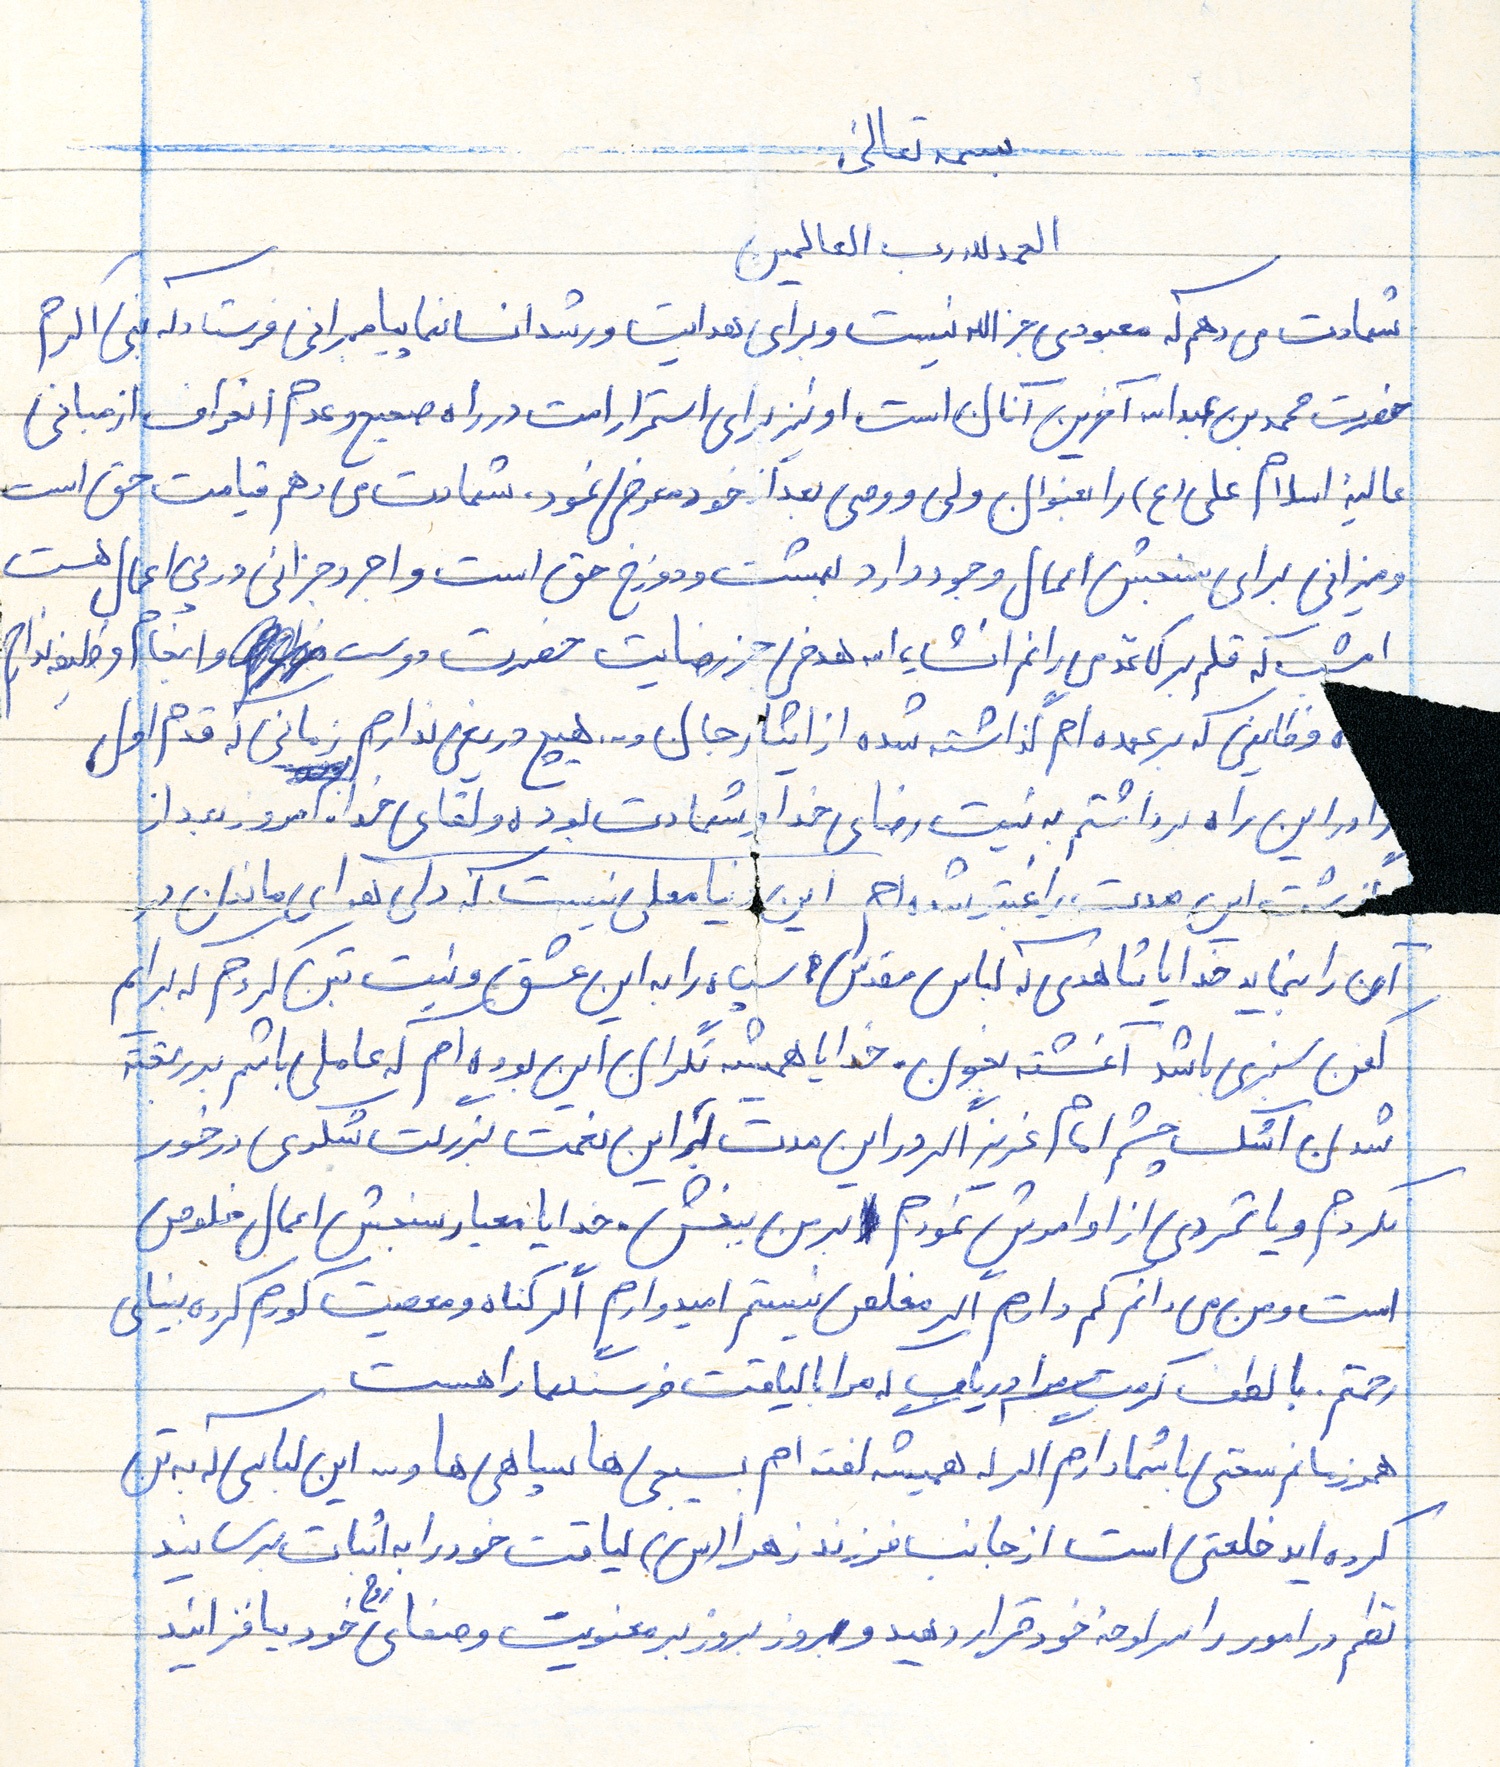 بسمه تعالی
الحمدلله رب العالمین
شهادت می دهم که معبودی جز الله نیست و برای هدایت و رشد انسانها پیامبرانی فرستاد که نبی اکرم
حضرت محمد بن عبدالله آخرین آنان است او نیز برای استمرار امت در راه صحیح و عدم انحراف از مبانی
عالیهٔ اسلام علی (ع) را بعنوان ولی و وصی بعد از خود معرفی نمود. شهادت می دهم قیامت حق است
و میزانی برای سنجش اعمال وجود دارد بهشت و دوزخ حق است و اجر و جزائی در پی اعمال هست
امشب که قلم بر کاغذ می رانم انشاءالله هدفی جز رضایت حضرت دوست و انجام وظیفه ندارم
وظایفی که بر عهده ام گذاشته شده از ایثار جان و... هیچ دریغی ندارم زمانی که قدم اول
را در این راه برداشتم به نیت رضای خدا و شهادت بوده و لقای خدا. امروز بعد از
گذشت این مدت راغبتر شده ام این دنیا محلی نیست که دلی هوای ماندن در
آن را بنماید خدایا شاهدی که لباس مقدس سپاه را به این عشق و نیت تن کردم که برایم
کفن سبزی باشد آغشته بخون. خدایا همیشه نگران این بوده ام که عاملی باشم بر ریخته
شدن اشک چشم امام عزیز اگر در این مدت از این نعمت بزرگت شکری در خور
نکردم و یا تمردی از اوامرش نمودم بر من ببخش. خدایا معیار سنجش اعمال خلوص
است و من می دانم کم دارم اگر مخلص نیستم امیدوارم اگر گناه و معصیت کورم کرده بینای
رحمتم. با لطف کرمت مرا دریاب که مرا با لیاقت فرسنگها راهست
همرزمانم سخنی با شما دارم اگر که همیشه گفته ام بسیجی ها سپاهی ها و... این لباسی که به تن
کرده اید خلعتی است از جانب فرزند زهرا (س) لیاقت خود را به اثبات برسانید
نظم در امور را سرلوحهٔ خود قرار دهید و روز بروز بر معنویت و صفای روح خود بیافزائید